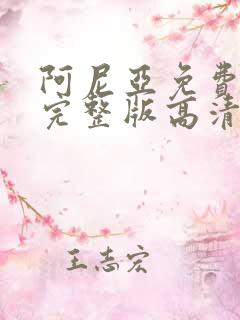 阿尼亞免費
完整版高清
王志宏